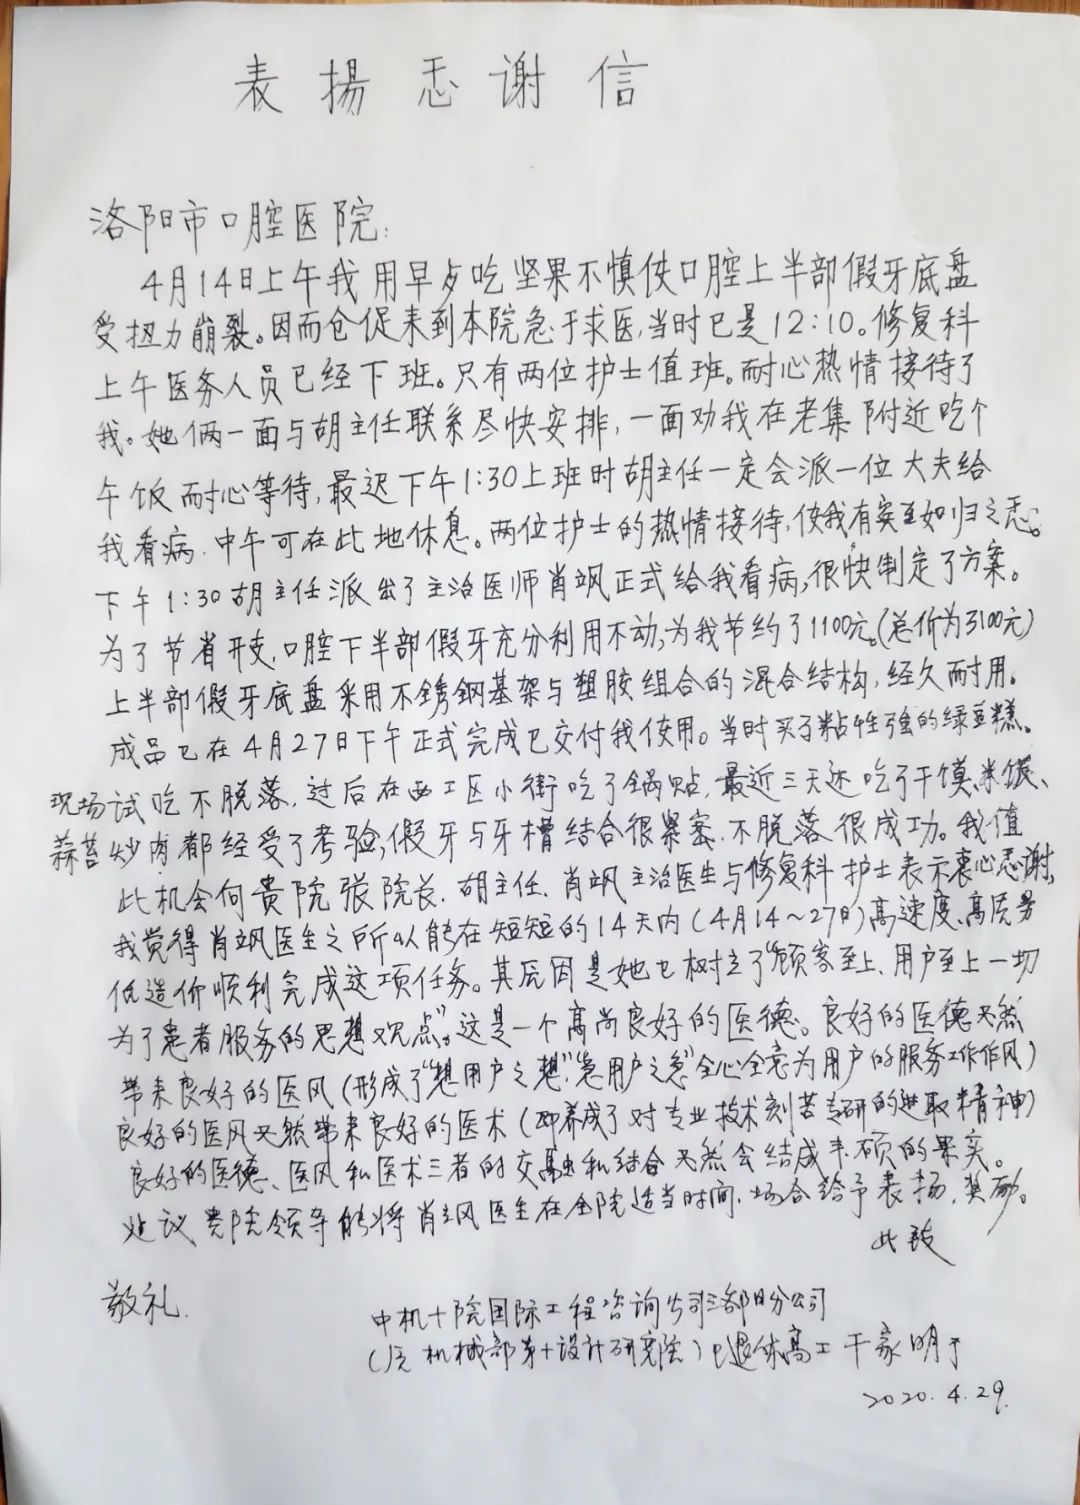 表揚志谢信
洛阳市口腔医院:
4月14日上午我用早歺吃坚果不慎使口腔上半部假牙底盘
受扭力崩裂。因而仓促来到本院急于求医,当时已是12:10。修复科
上午医务人员已经下班。只有两位护士值班。耐心热情接待了
我。她俩一面与胡主任联系尽快安排,一面劝我在老集附近吃个
午饭耐心等待,最迟下午1:30上班时胡主任一定会派一位大夫给
我看病.中午可在此地休息。两位护士的热情接待,使我有宾至如归之
下午1:30胡主任派出了主治医师肖飒正式给我看病,很快制定了方案。
为了节省开支,口腔下半部假牙充分利用不动,为我节约了1100元。(总价为3100元)
上半部假牙底盘采用不锈钢基架与塑胶组合的混合结构,经久耐用。
成品已在4月27日下午正式完成已交付我使用。当时买了粘性强的绿豆糕、
现场试吃不脱落,过后在西工区小街吃了锅贴,最近三天还吃了干馍、米饭、
蒜苔炒肉都经受了考验,假牙与牙槽结合很紧密.不脱落很成功。我值
此机会向贵院张院长、胡主任、肖飒主治医生与修复科护士表示衷心志谢,
我觉得肖飒医生之所以能在短短的14天内(4月14~27日)高速度、高质量
低造价顺利完成这项任务。其原因是她已树立了“顾客至上、用户至上一切
为了患者服务的思想观点”。这是一个高尚良好的医德。良好的医德必然
带来良好的医风(形成了“想用户之想”,“急用户之急”全心全意为用户的服务工作作风)
良好的医风必然带来良好的医术(即养成了对专业技术刻苦专研的进取精神)
良好的医德、医风和医术三者的交融和结合必然会结成丰硕的果实。
建议贵院领导能将肖飒医生在全院适当时间.场合给予表扬.奖励。
此致
敬礼.
中机十院国际工程咨询公司三部分公司
(原机械部第十设计研究院)已退休高工 干家明于
2020.4.29.